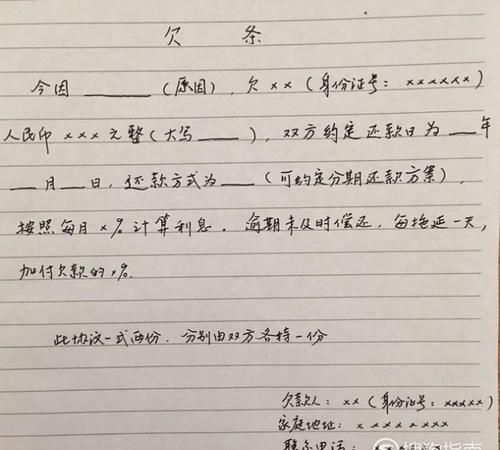 欠 条
今因______(原因),欠××(身份证号:××××××)
人民币×××元整(大写____),双方约定还款日为___年
__月__日,还款方式为___(可约定分期还款方案),
按照每月×%计算利息。逾期未及时偿还,每拖延一天,
加付欠款的×%。
此协议一式两份,分别由双方各持一份
欠款人:××(身份证号:×××××)
家庭地址:××××××××
联系电话: